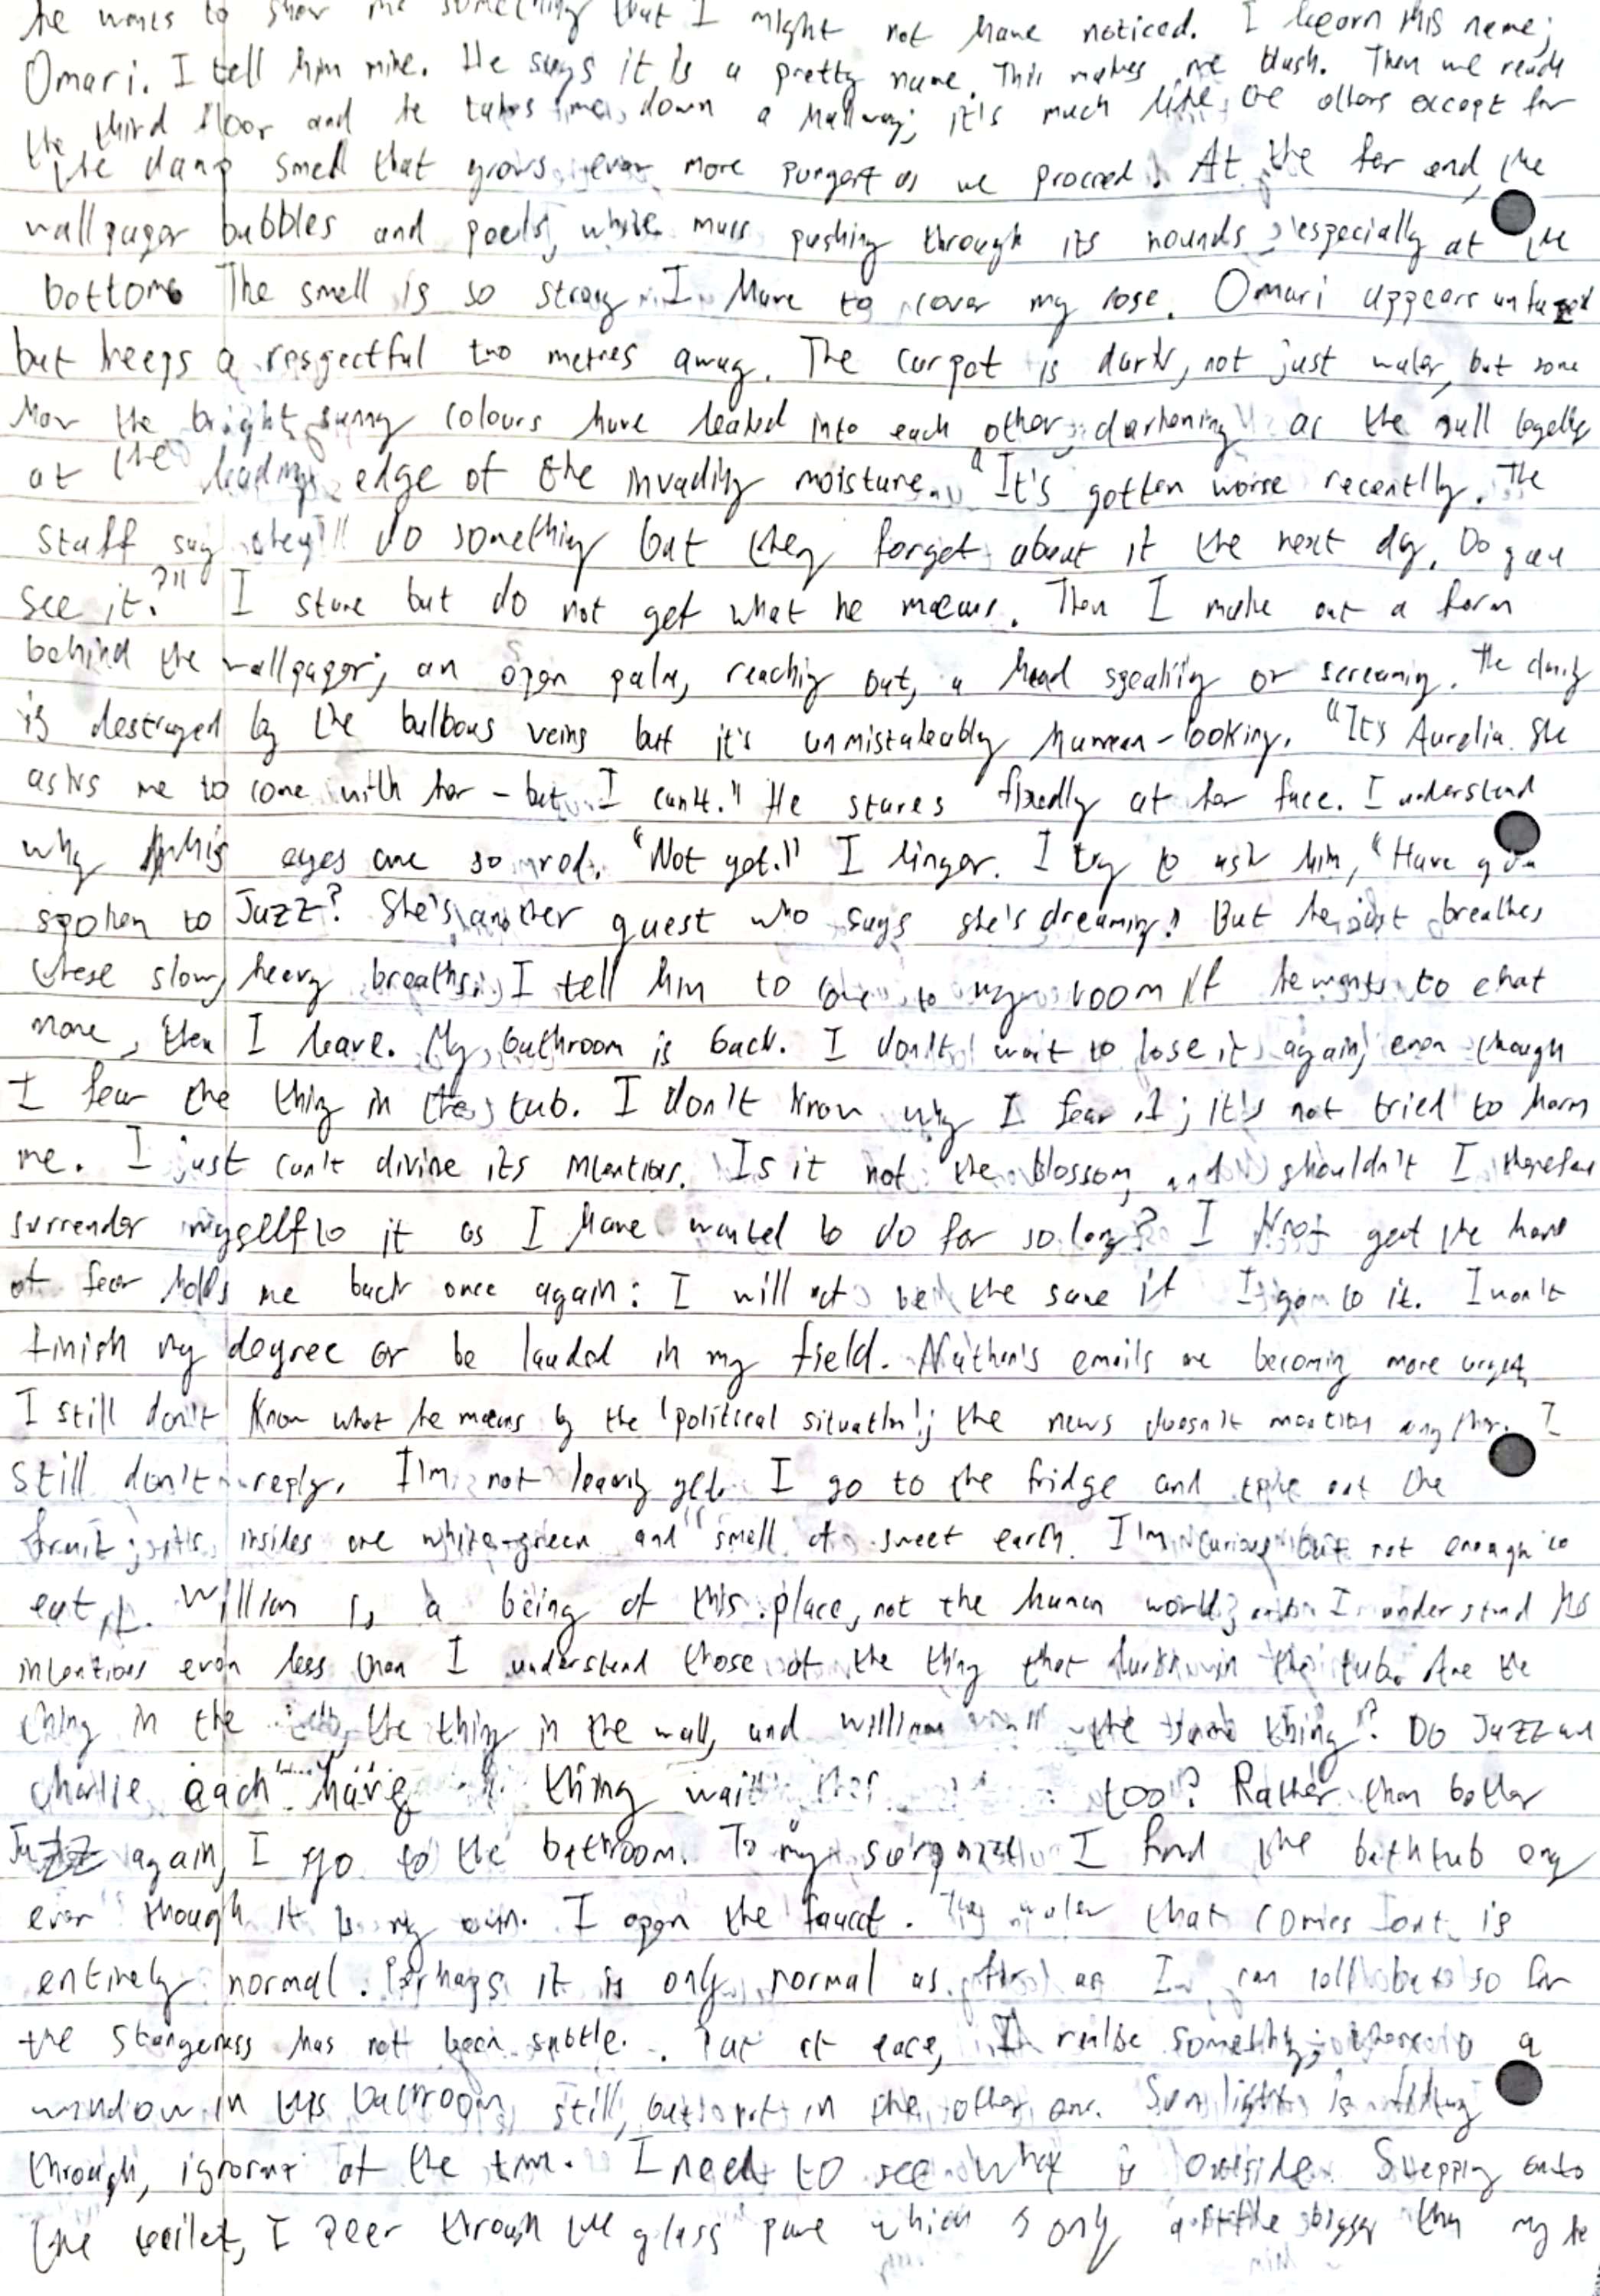 he wants to show me something that I might not have noticed. I learn his name;
Omari. I tell him mine. He says it is a pretty name. This makes me blush. Then we reach
the third floor and he takes me down a hallway; it's much like the others except for
the damp smell that grows ever more pungent as we proceed. At the far end, the
wallpaper bubbles and peels, white moss pushing through its wounds, especially at the
bottom. The smell is so strong I have to cover my nose. Omari appears unfazed
but keeps a respectful two metres away. The carpet is dark, not just water, but some
how the bright sunny colours have leaked into each other, darkening as the pull together
at the leading edge of the invading moisture. "It's gotten worse recently. The
staff say they'll do something but they forget about it the next day. Do you
see it?" I stare but do not get what he means. Then I make out a form
behind the wallpaper; an open palm, reaching out, a head speaking or screaming. The clarity
is destroyed by the bulbous veins but it's unmistakeably human-looking. "It's Aurelia. She
asks me to come with her - but I can't." He stares fixedly at her face. I understand
why his eyes are so red. "Not yet." I linger. I try to ask him, "Have you
spoken to Jazz? She's another guest who says she's dreaming." But he just breathes
these slow, heavy breaths. I tell him to come to my room if he wants to chat
more, then I leave. My bathroom is back. I don't want to lose it again, even though
I fear the thing in the tub. I don't know why I fear it; it's not tried to harm
me. I just can't divine its intentions. Is it not the blossom, and shouldn't I therefore
surrender myself to it as I have wanted to do for so long? I great the hand
of fear holds me back once again: I will not be the same if I go to it. I won't
finish my degree or be lauded in my field. Nathan's emails are becoming more urgent,
I still don't know what he means by the 'political situation'; the news doesn't mention anything. I
still don't reply. I'm not leaving yet. I go to the fridge and take out the
fruit; its insides are white-green and smell of sweet earth. I'm curious but not enough to
eat it. William is a being of this place, not the human world; I understand his
intentions even less than I understand those of the thing that lurks in the tub. Are the
thing in the tub, the thing in the wall, and William all the same thing? Do Jazz and
Charlie each have thing too? Rather than bother
Jazz again, I go to the bathroom. To my surprise I find the bathtub empty
even though it is my own. I open the faucet. The water that comes out is
entirely normal. Perhaps it is only normal as far as I can tell but so far
the stangeness has not been subtle. Put at ease, I realise something; there is a
window in this bathroom still, but not in the other one. Sunlight is filtering
through, ignorant of the time. I need to see what is outside. Stepping onto
the toilet, I peer through the glass pane which is only a little bigger than my he